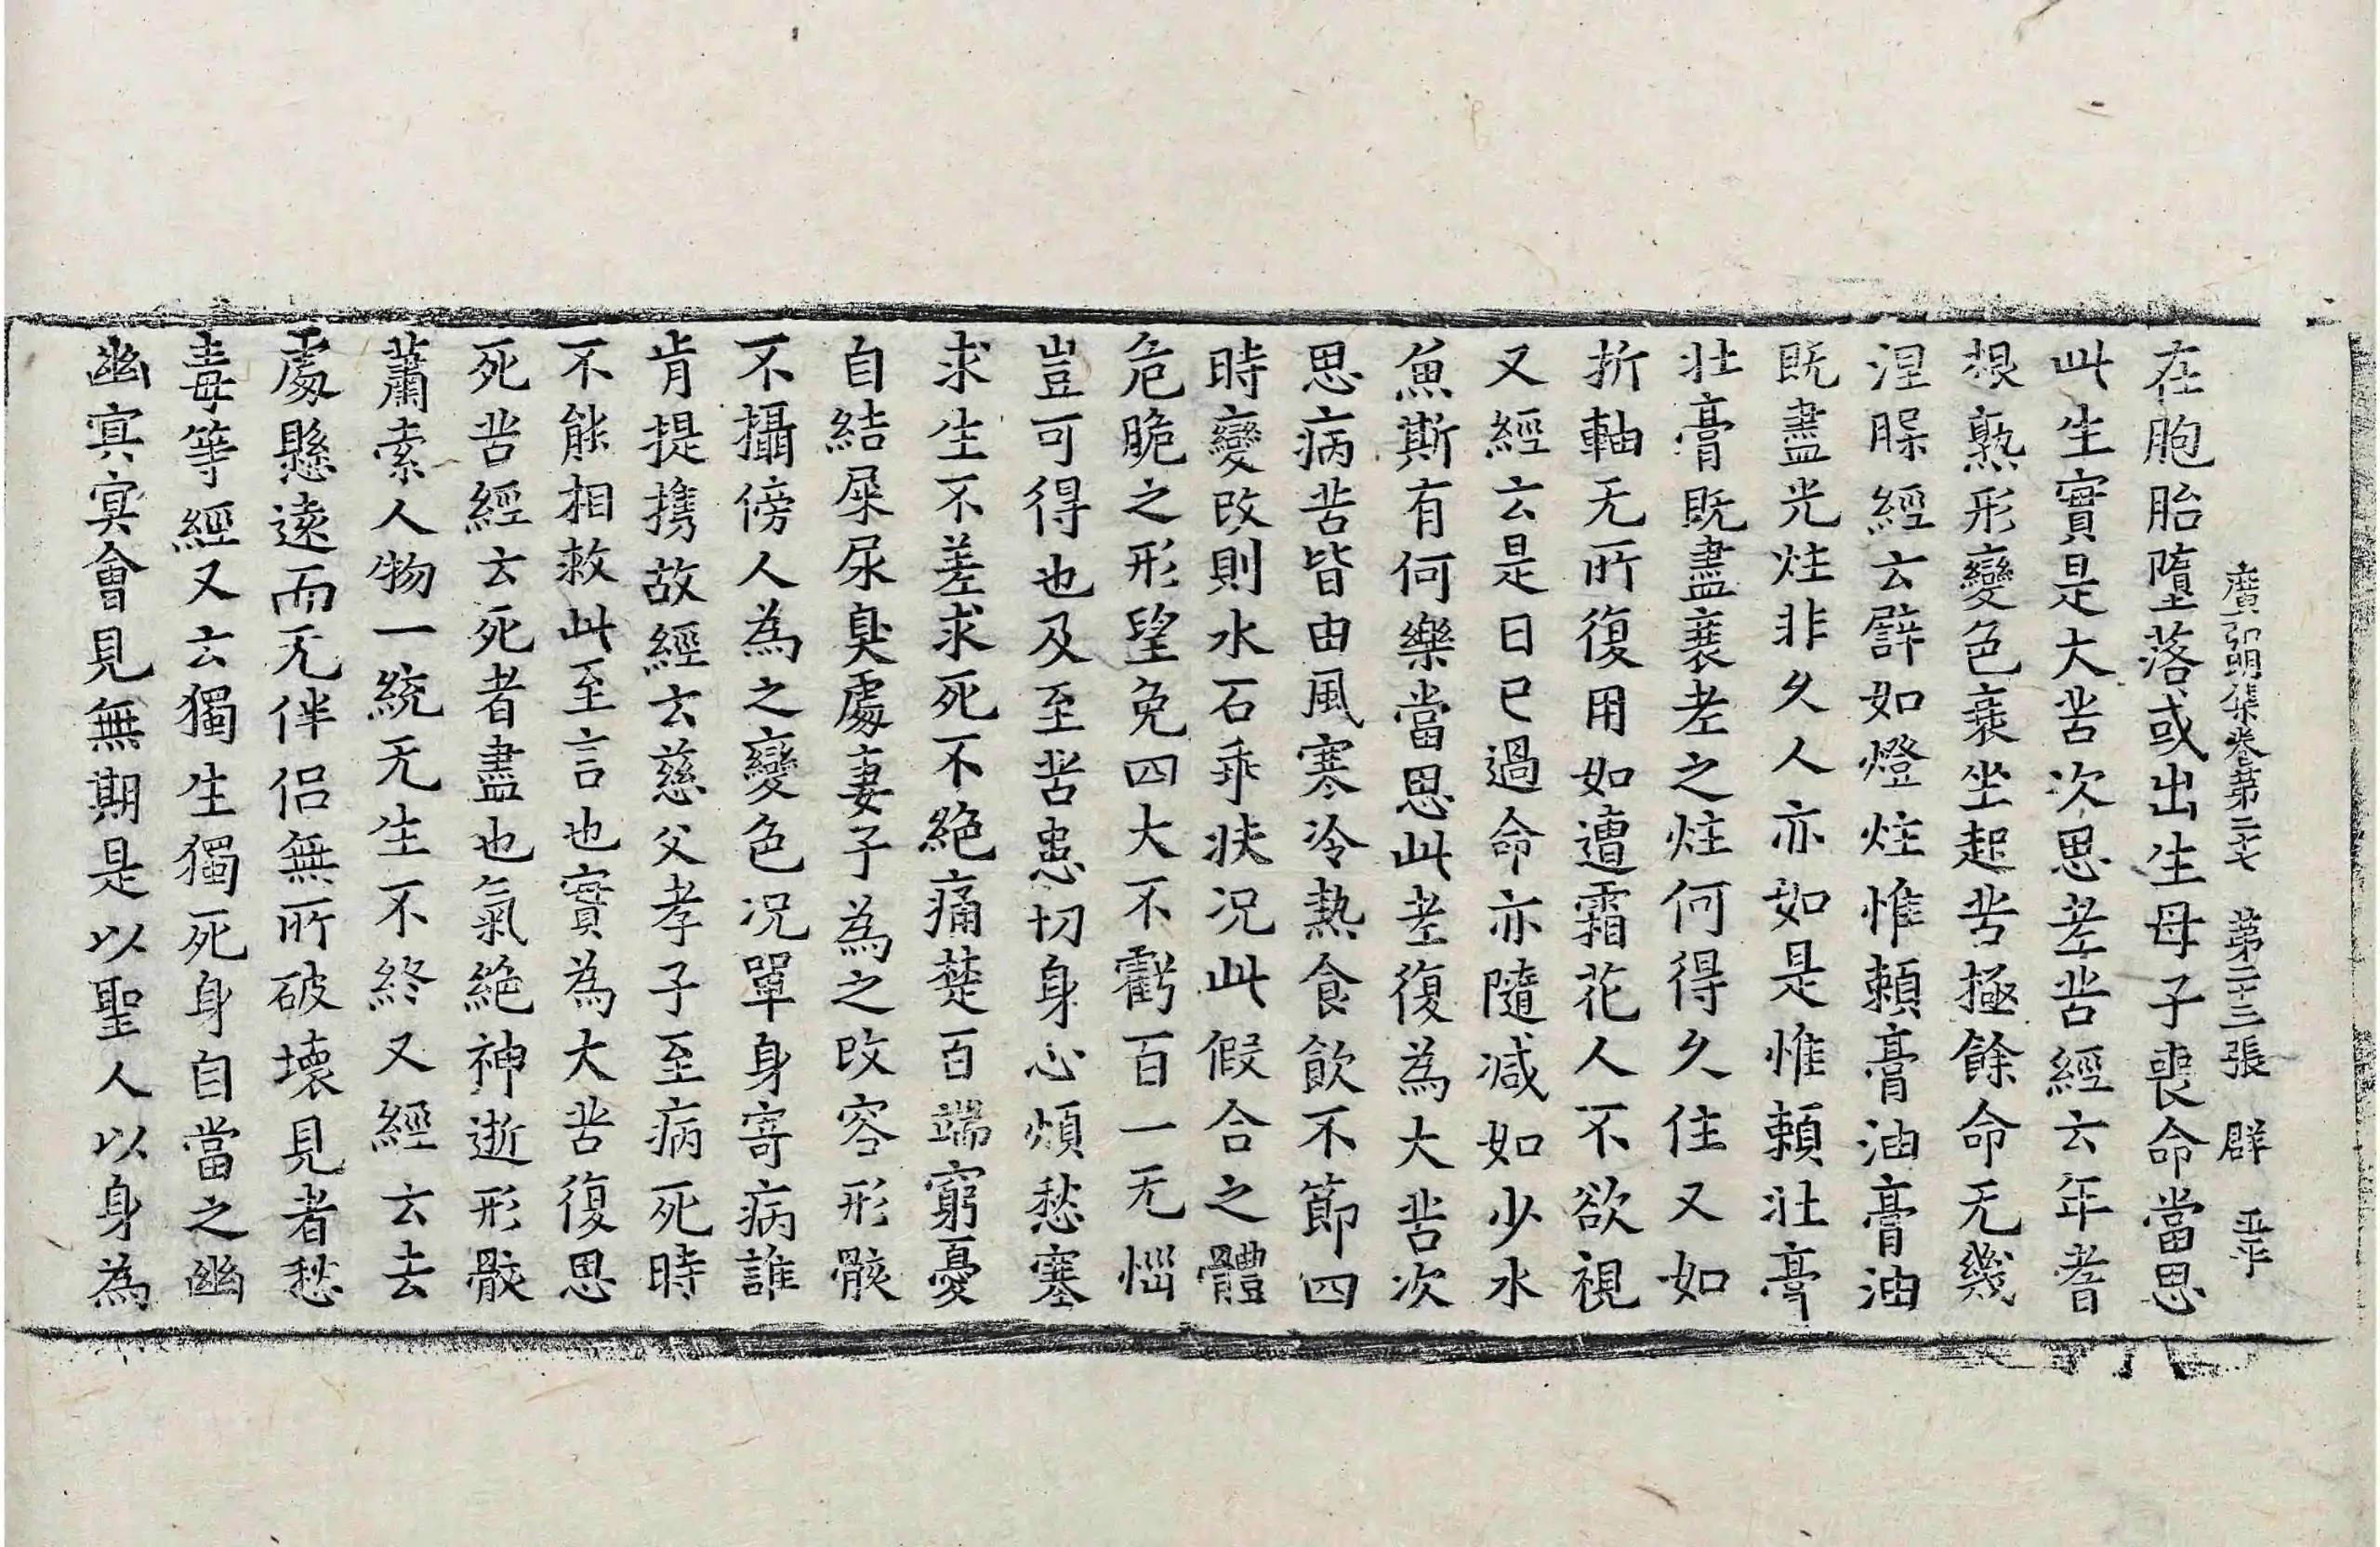 廣弘明集卷第二十七　第二十三張　群　亚平
在胞胎墮落或出生母子喪命當思
此生實是大苦次思老苦經云年耆
根熟形變色衰坐起苦極餘命无幾
涅槃經云譬如燈炷惟賴膏油膏油
既盡光炷非久人亦如是惟賴壯膏
壯膏既盡衰老之炷何得久住又如
折軸无所復用如遭霜花人不欲視
又經云是日已過命亦隨減如少水
魚斯有何樂當思此老復為大苦次
思病苦皆由風寒冷熱食飲不節四
時變改則水石乖扶況此假合之體
危脆之形望免四大不虧百一无惱
豈可得也及至苦患切身心煩愁塞
求生不差求死不絕痛楚百端窮憂
自結屎尿臭處妻子為之改容形骸
不攝傍人為之變色況單身寄病誰
肯提攜故經云慈父孝子至病死時
不能相救此至言也實為大苦復思
死苦經云死者盡也氣絕神逝形骸
蕭索人物一統无生不終又經云去
處懸遠而无伴侶無所破壞見者愁
毒等經又云獨生獨死身自當之幽
幽冥冥會見無期是以聖人以身為